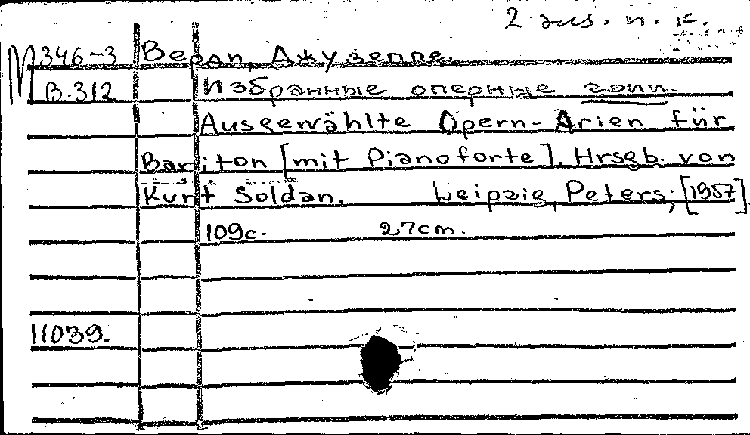 2 экз. н. к.
М 346-3 Верди, Джузеппе.
В-312 Избранные оперные арии.
Ausgewählte Opern-Arien für
Bariton [mit Pianoforte]. Hrsgb. von
Kurt Soldan. Leipzig, Peters, [1957].
109 с. 27 cm.
11039.